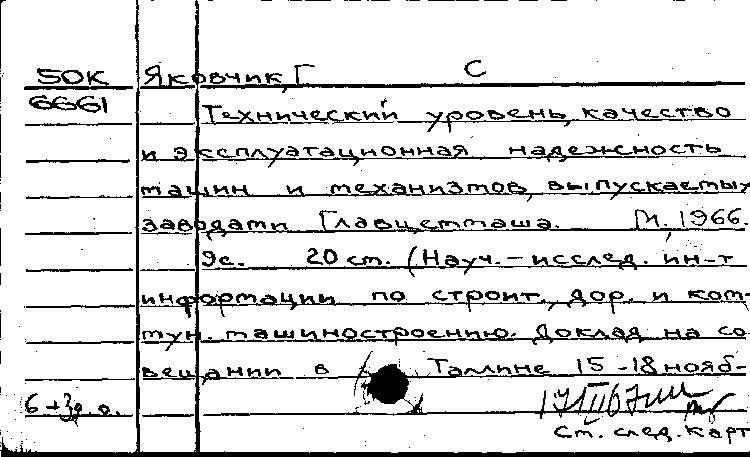 50К Яковчик, Г С
6661 Технический уровень, качество
и эксплуатационная надежность
машин и механизмов, выпускаемых
заводами Главцеммаша. М., 1966.
9с. 20 см. (Науч.-исслед. ин-т
информации по строит., дор. и ком-
мун. машиностроению. Доклад на со
вещании в Таллине 15-18 нояб-
6 +3д.о.
См. след. карт